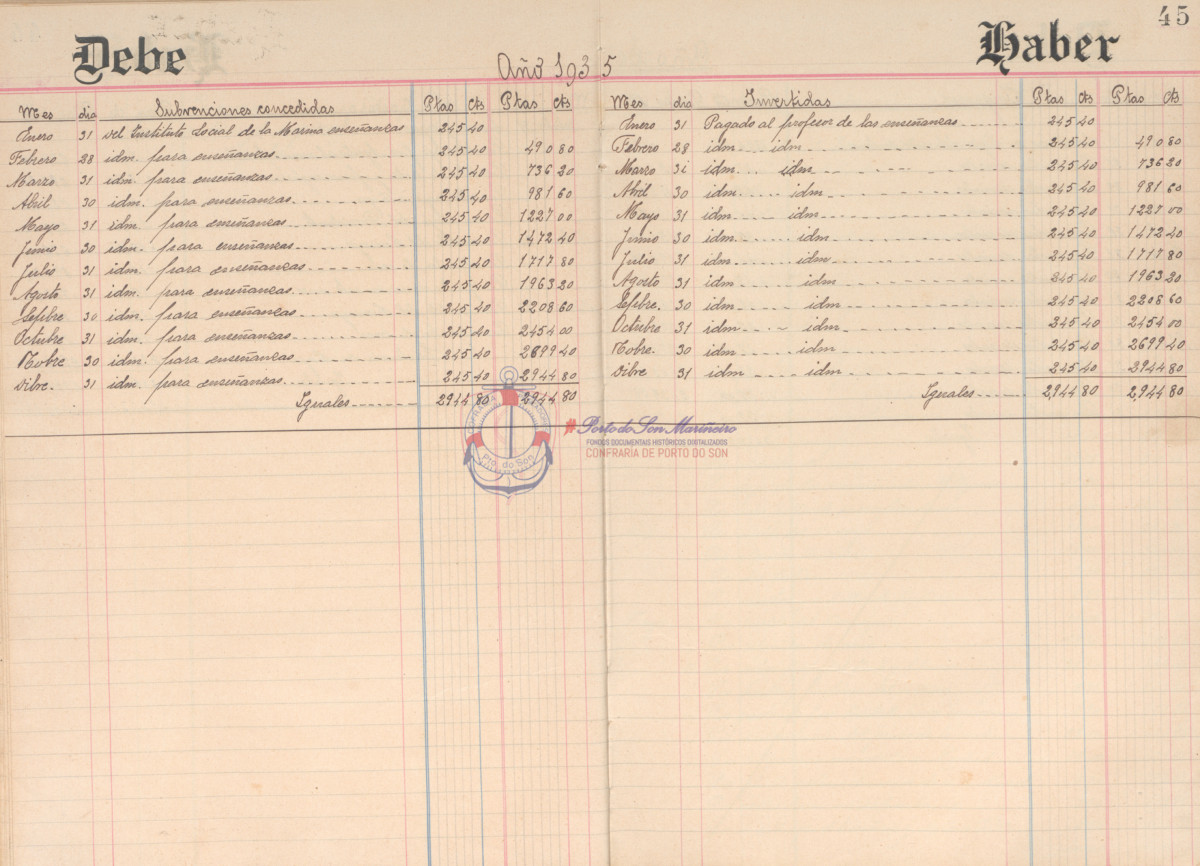 45
Debe
Año 1935
Haber
Mes dia Subvenciones concedidas Ptas Cts Ptas Cts
Enero 31 Del Instituto Social de la Marina enseñanzas 245 40
Febrero 28 idm. para enseñanzas 245 40 490 80
Marzo 31 idm. para enseñanzas 245 40 736 20
Abril 30 idm. para enseñanzas 245 40 981 60
Mayo 31 idm. para enseñanzas 245 40 1227 00
Junio 30 idm. para enseñanzas 245 40 1472 40
Julio 31 idm. para enseñanzas 245 40 1717 80
Agosto 31 idm. para enseñanzas 245 40 1963 20
Sepbre. 30 idm. para enseñanzas 245 40 2208 60
Octubre 31 idm. para enseñanzas 245 40 2454 00
Nobre 30 idm. para enseñanzas 245 40 2699 40
Dibre. 31 idm. para enseñanzas 245 40 2944 80
Iguales 2944 80 2944 80
Mes dia Invertidas Ptas Cts Ptas Cts
Enero 31 Pagado al profesor de las enseñanzas 245 40
Febrero 28 idm idm 245 40 490 80
Marzo 31 idm idm 245 40 736 20
Abril 30 idm idm 245 40 981 60
Mayo 31 idm idm 245 40 1227 00
Junio 30 idm idm 245 40 1472 40
Julio 31 idm idm 245 40 1717 80
Agosto 31 idm idm 245 40 1963 20
Sepbre. 30 idm idm 245 40 2208 60
Octubre 31 idm idm 245 40 2454 00
Nobre. 30 idm idm 245 40 2699 40
Dibre 31 idm idm 245 40 2944 80
Iguales 2,944 80 2,944 80
Pto. do Son
#Porto do Son Mariñeiro
FONDOS DOCUMENTAIS HISTÓRICOS DIXITALIZADOS
CONFRARÍA DE PORTO DO SON